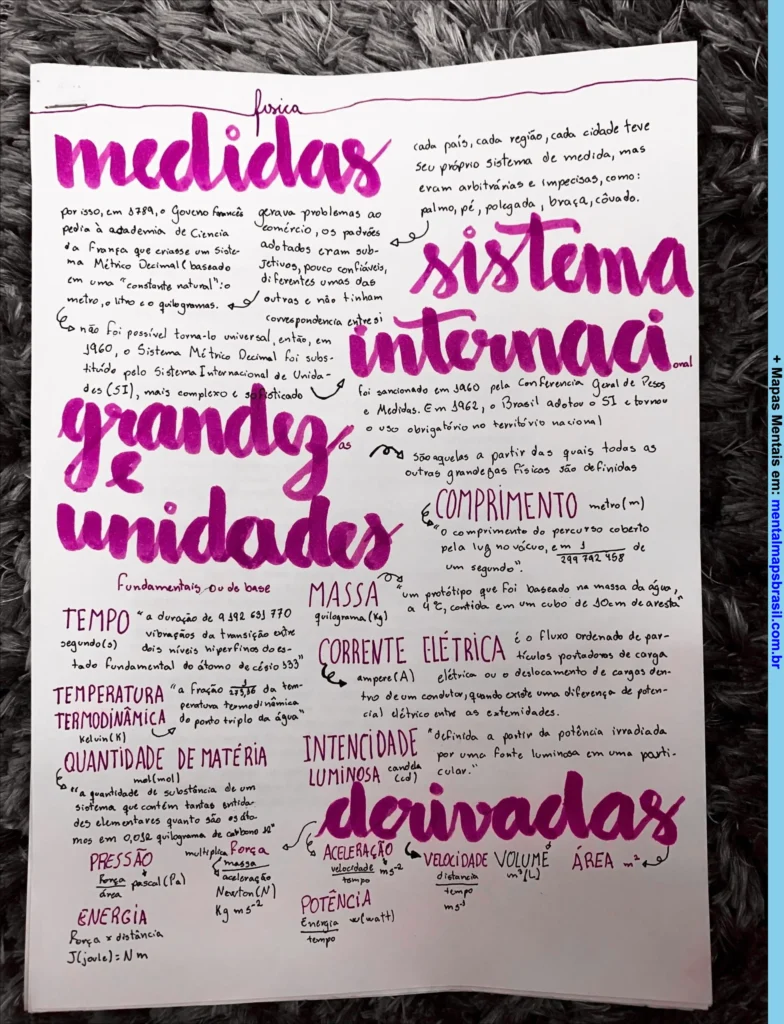 física
medidas
cada país, cada região, cada cidade teve
seu próprio sistema de medida, mas
eram arbitrárias e impecisas, como:
palmo, pé, polegada, braça, côvado.
gerava problemas ao
comércio, os padrões
adotados eram sub-
jetivos, pouco confiáveis,
diferentes umas das
outras e não tinham
correspondencia entre si
por isso, em 1789, o Goveno francês
pedia à academia de Ciencia
da França que criasse um Siste-
ma Métrico Decimal (baseado
em uma "constante natural":o
metro, o litro e o quilogramas.
não foi possível torna-lo universal, então, em
1960, o Sistema Métrico Decimal foi subs-
tituído pelo Sistema Internacional de Unida-
des (SI), mais complexo e sofisticado
sistema
internacional
foi sancionado em 1960 pela Conferencia Geral de Pesos
e Medidas. Em 1962, o Brasil adotou o SI e tornou
o uso obrigatório no território nacional
grandezas
e
unidades
são aquelas a partir das quais todas as
outras grandezas físicas são definidas
fundamentais ou de base
COMPRIMENTO metro (m)
"o comprimento do percurso coberto
pela luz no vácuo, em 1/299 792 458 de
um segundo".
MASSA
quilograma (Kg)
"um protótipo que foi baseado na massa da água,
a 4°C, contida em um cubo de 10cm de aresta"
TEMPO
segundo(s)
"a duração de 9 192 631 770
vibrações da transição entre
dois níveis hiperfinos do es-
tado fundamental do átomo de césio 133"
CORRENTE ELÉTRICA
ampere (A)
é o fluxo ordenado de par-
tículos portadoros de carga
elétrica ou o deslocamento de cargas den-
tro de um condutor, quando existe uma diferença de poten-
cial elétrico entre as extemidades.
TEMPERATURA
TERMODINÂMICA
Kelvin (K)
"a fração 1/273,16 da tem-
peratura termodinâmica
do ponto triplo da água"
INTENCIDADE
LUMINOSA candela
(cd)
"definida a partir da potência irradiada
por uma fonte luminosa em uma parti-
cular."
QUANTIDADE DE MATÉRIA
mol(mol)
"a quantidade de substância de um
sistema que contém tantas entida-
des elementares quanto são os áto-
mos em 0,012 quilograma de carbono 12"
derivadas
PRESSÃO
Força
área
pascal (Pa)
multiplica Força
massa
aceleração
Newton (N)
Kg ms⁻²
ACELERAÇÃO
velocidade
tempo
ms⁻²
VELOCIDADE
distancia
tempo
ms⁻¹
VOLUME
m³(L)
ÁREA m²
ENERGIA
Força x distância
J(joule) = N m
POTÊNCIA
Energia
tempo
w (watt)
+ Mapas Mentais em: mentalmapsbrasil.com.br